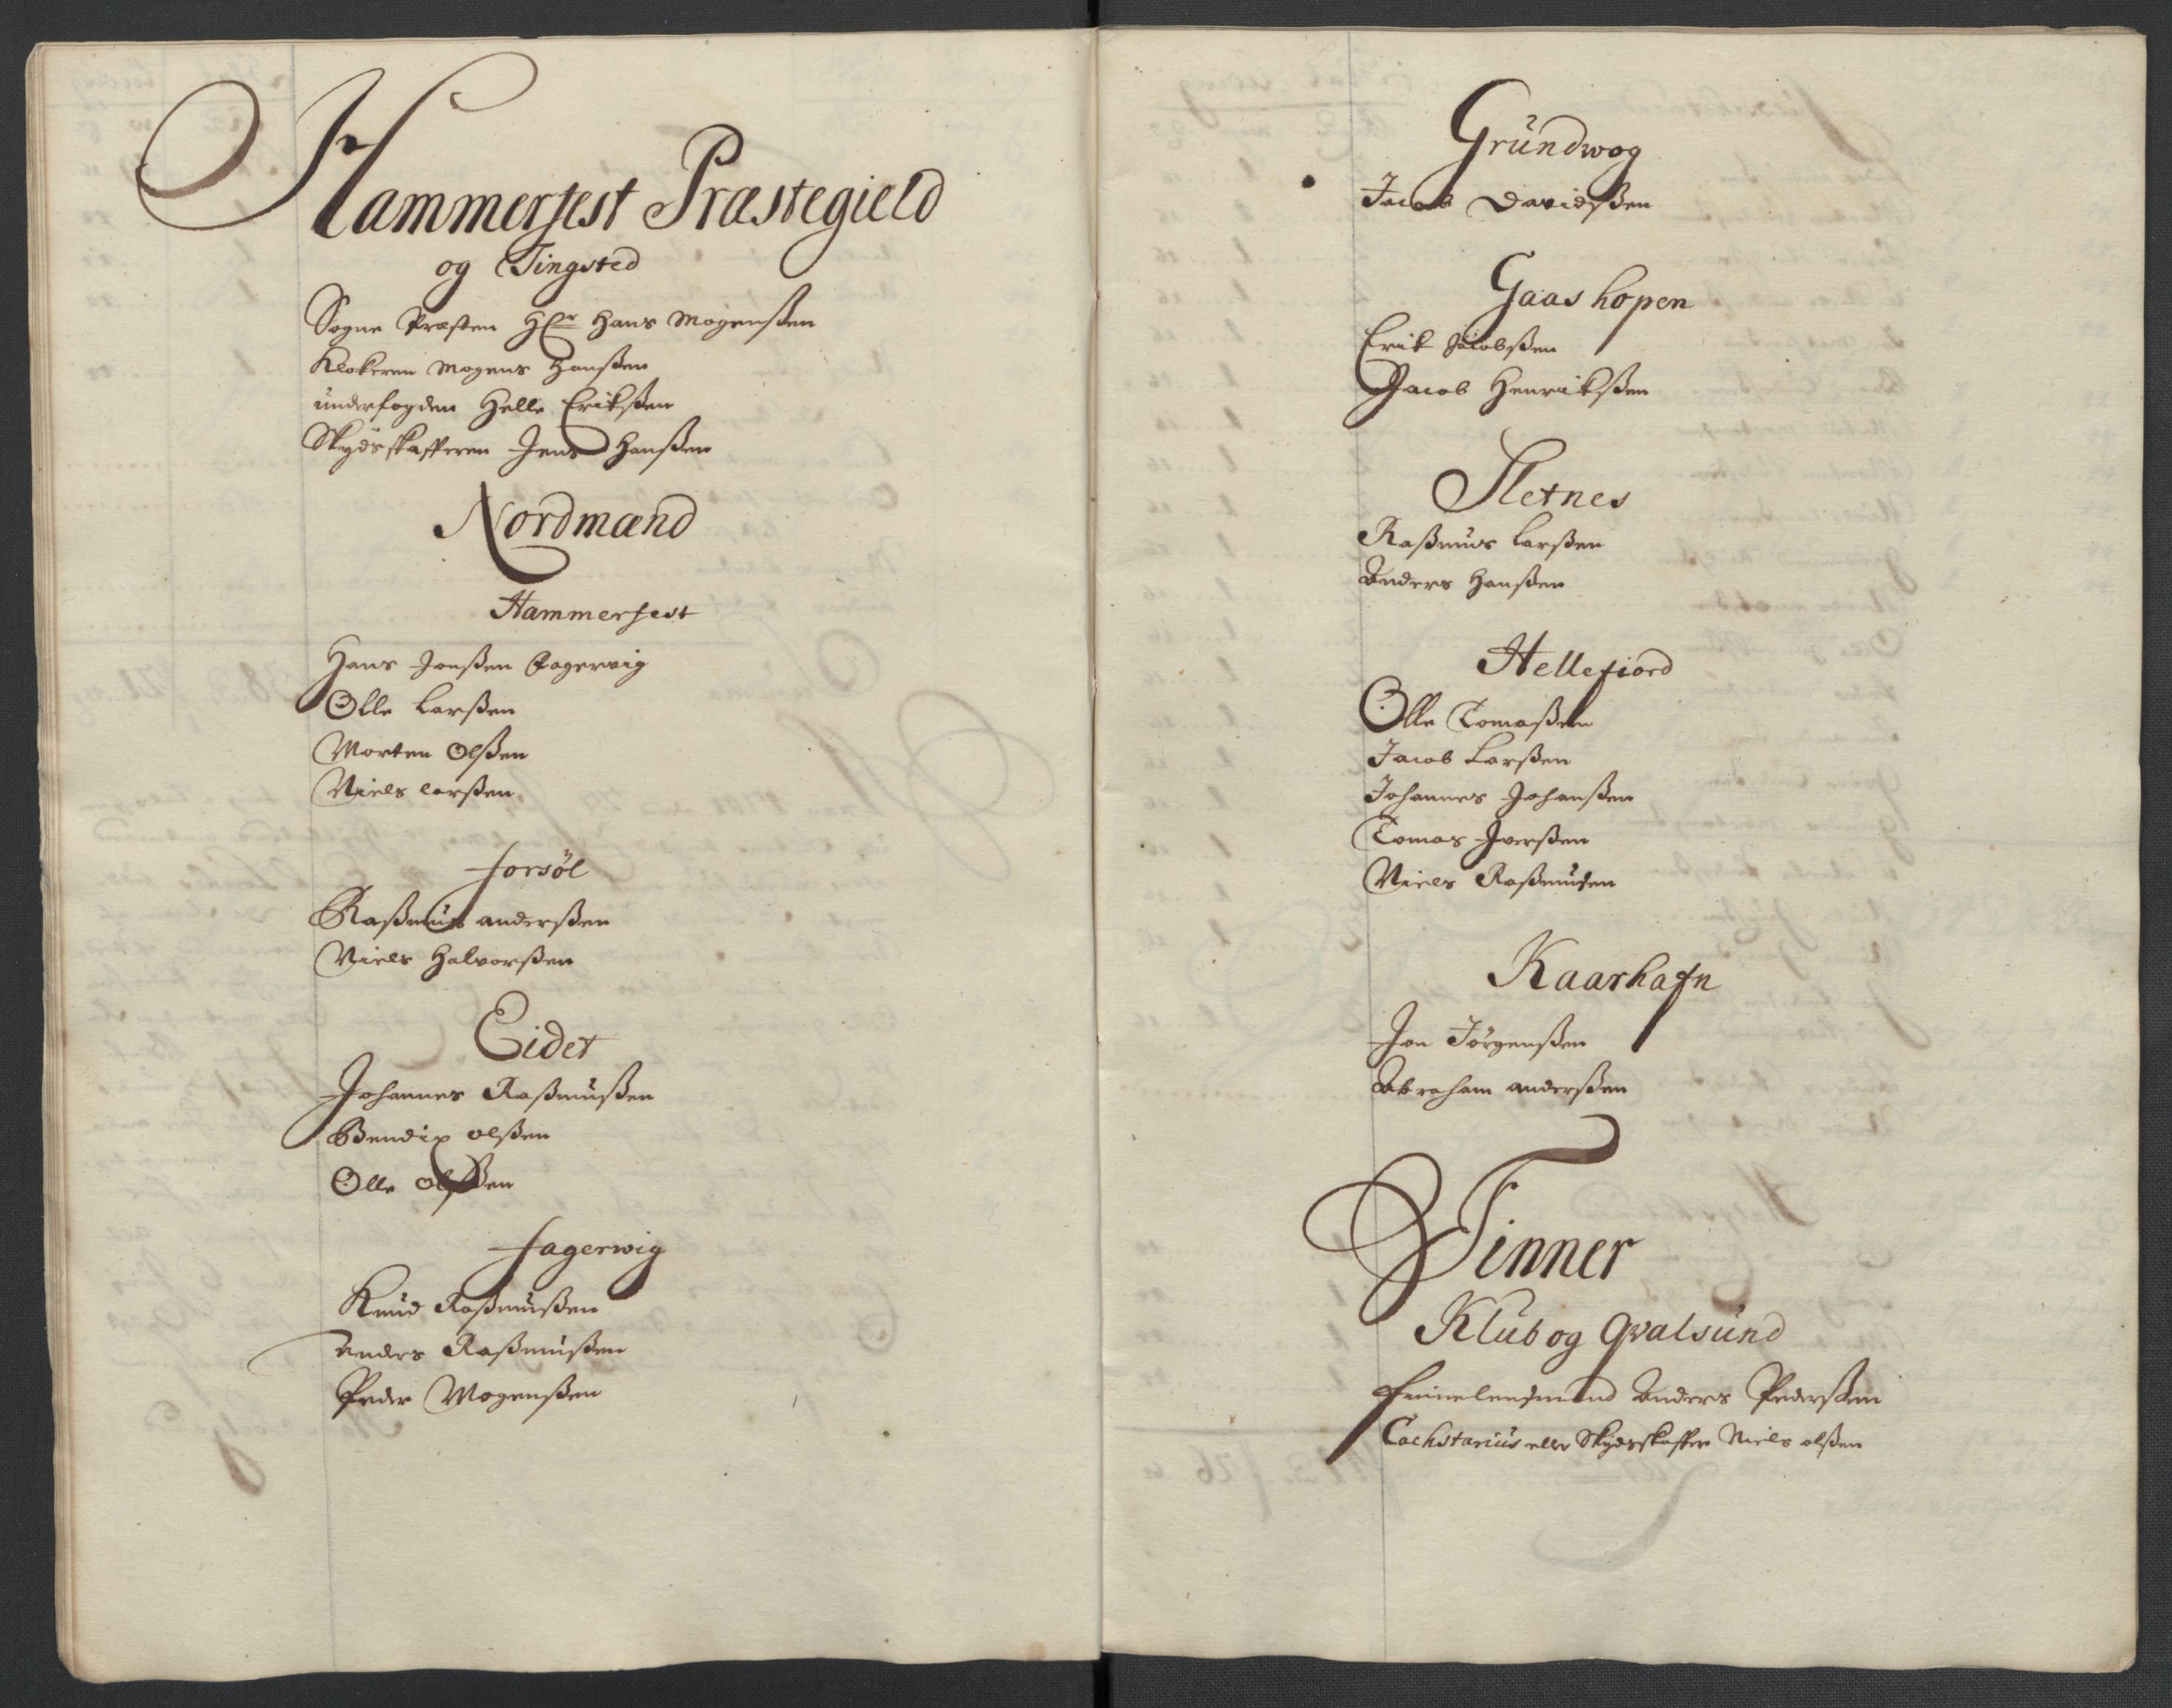 Hammerfest Præstegield
og Tingsted
Sogne Præsten Hr Hans Mogenßen
Klokeren Mogens Hanßen
underfogden Helle Erikßen
Skydsskafferen Jens Hanßen
Nordmænd
Hammerfest
Hans Jonßen Fagervig
Olle Larßen
Morten Olßen
Niels Larßen
forsöl
Raßmus anderßen
Niels Halvorßen
Eidet
Johannes Raßmußen
Bendix olßen
Olle olßen
fagerwig
Knud Raßmußen
Anders Raßmußen
Peder Mogenßen
Gründwog
Jacob Davidßen
Gaashopen
Erik Jacobßen
Jacob Henrikßen
Sletnes
Raßmus Larßen
Anders Hanßen
Hellefiord
Olle Tomaßen
Jacob Larßen
Johannes Johanßen
Tomas Iverßen
Niels Raßmusen
Kaarhafn
Jon Jörgenßen
Abraham anderßen
Finner
Klub og Qvalsund
Finnelensmand Anders Pederßen
Tachstarius eller Skydsskaffer Niels olßen